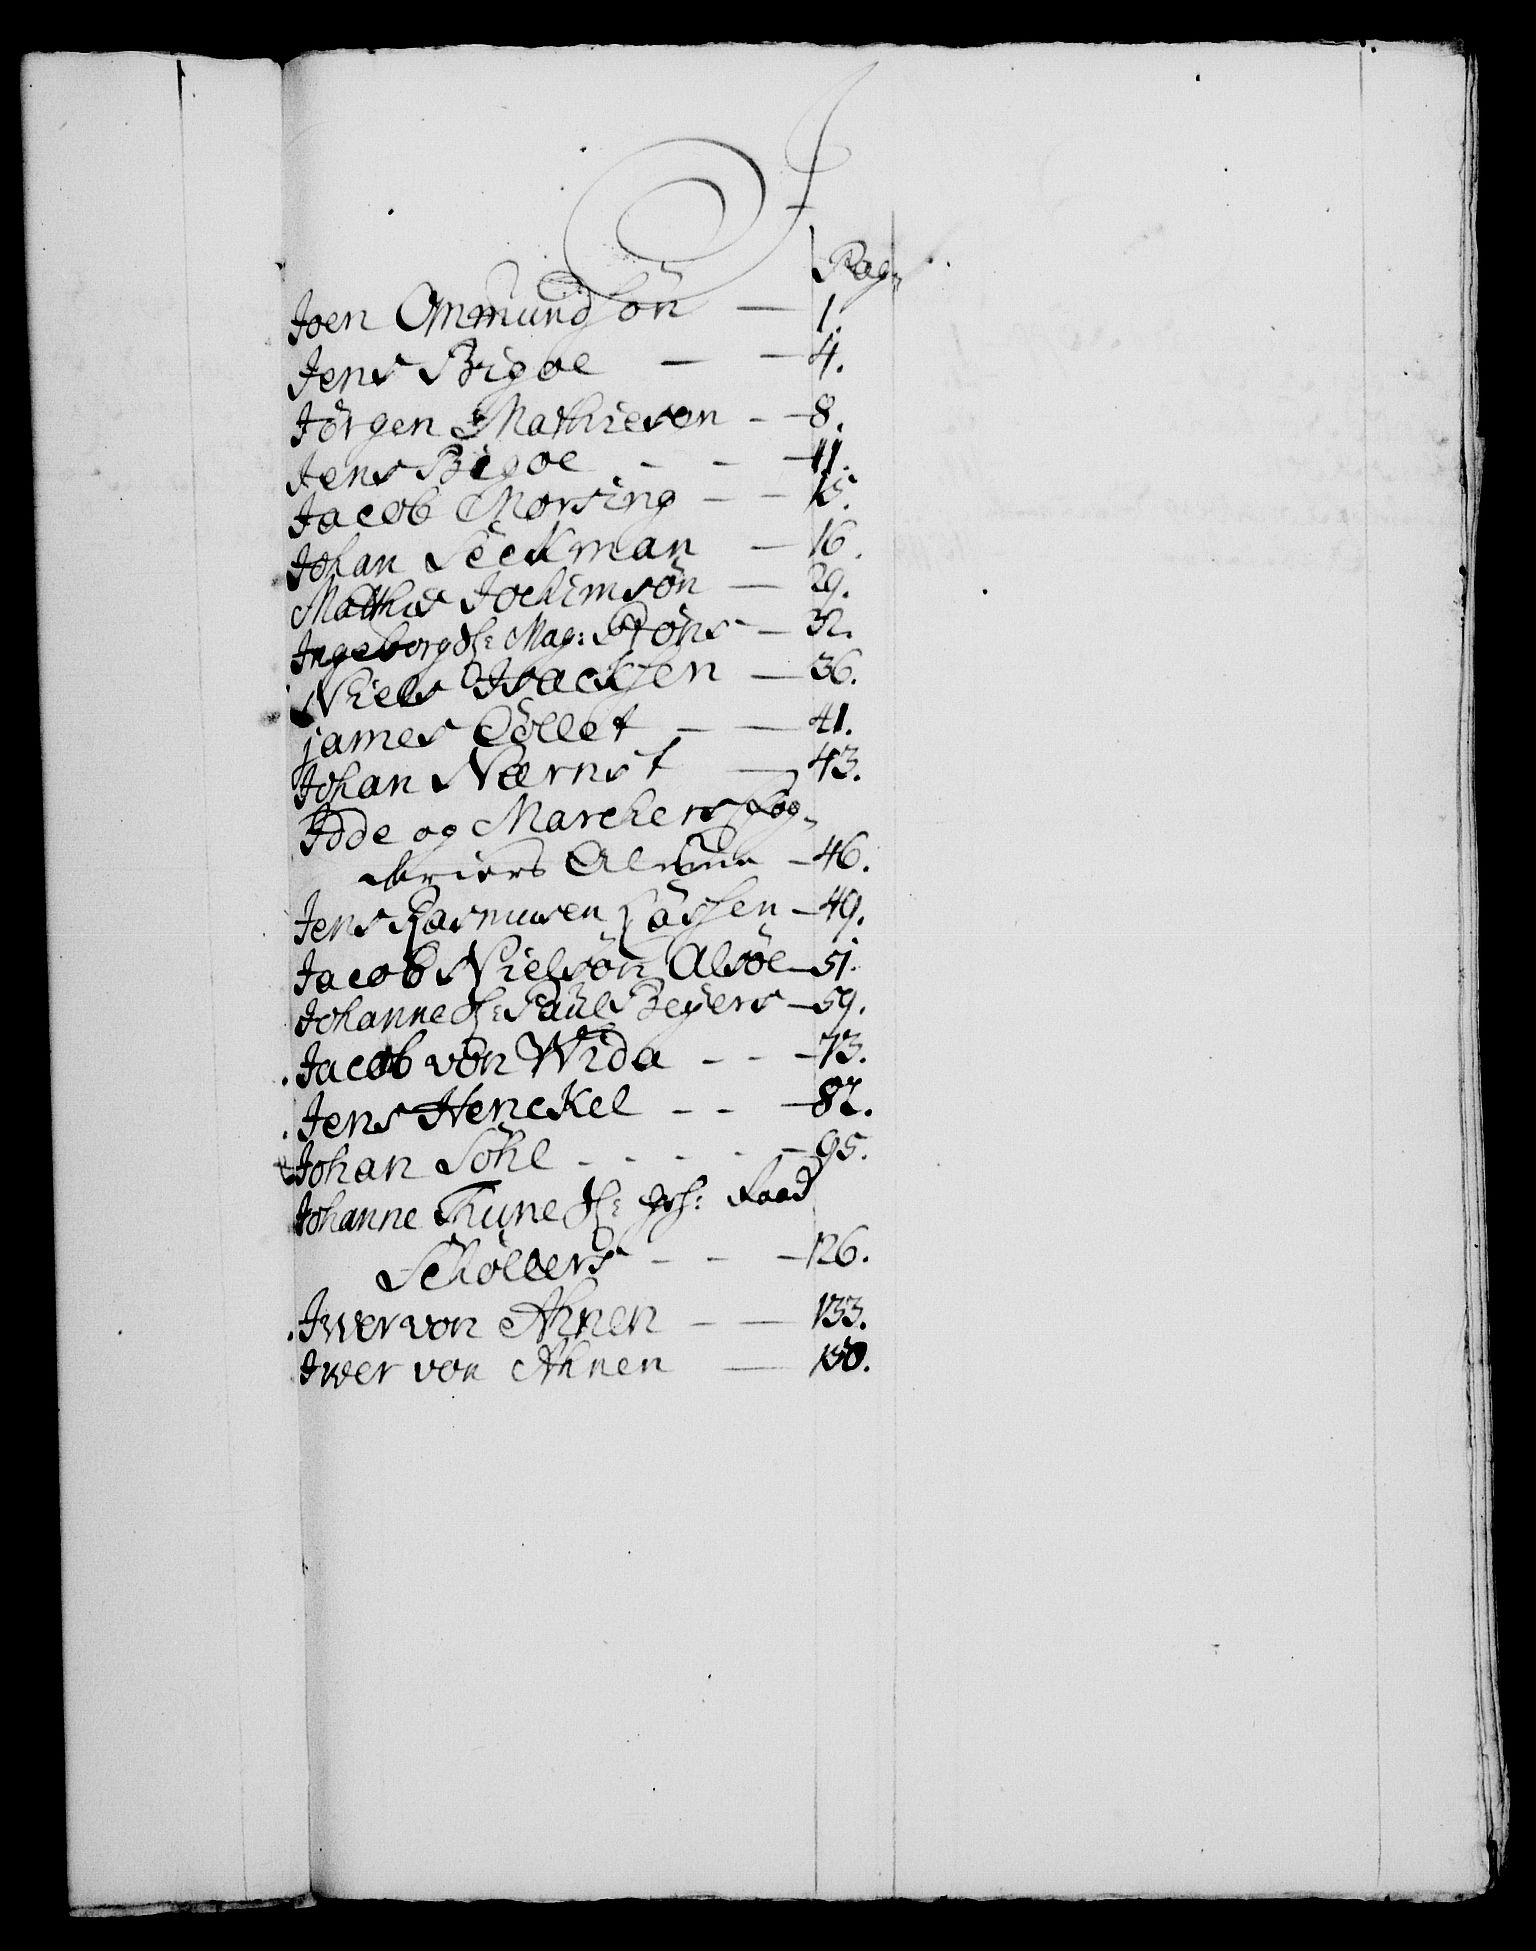 J
Pag:
Joen Ommundsön — 1.
Jens Bigoe — — 4.
Jörgen Mathiesen - — 8.
Jens Bigoe - - — 11.
Jacob Morsing - — 15.
Johan Söekman — 16.
Mathis Jochimsön — 29.
Ingeborg Sl: Mag: — 32.
Niels Isacksen — 36.
james Collet - — 41.
Johan Nærnst — 43.
Idde og Marchers fog-
deriers Almue — 46.
Jens Rasmusen — 49.
Jacob Nielsön Alsöe — 51.
Johanne Sl: Paul Beyers — 59.
Jacob von Wida - - — 73.
Jens Henckel - - — 82.
Johan Söhl - - - - — 95.
Johanne Thune Sl: Raad
Schöllers - - — 126.
Iwer von Ahnen - — 133.
Iwer von Ahnen — 150.